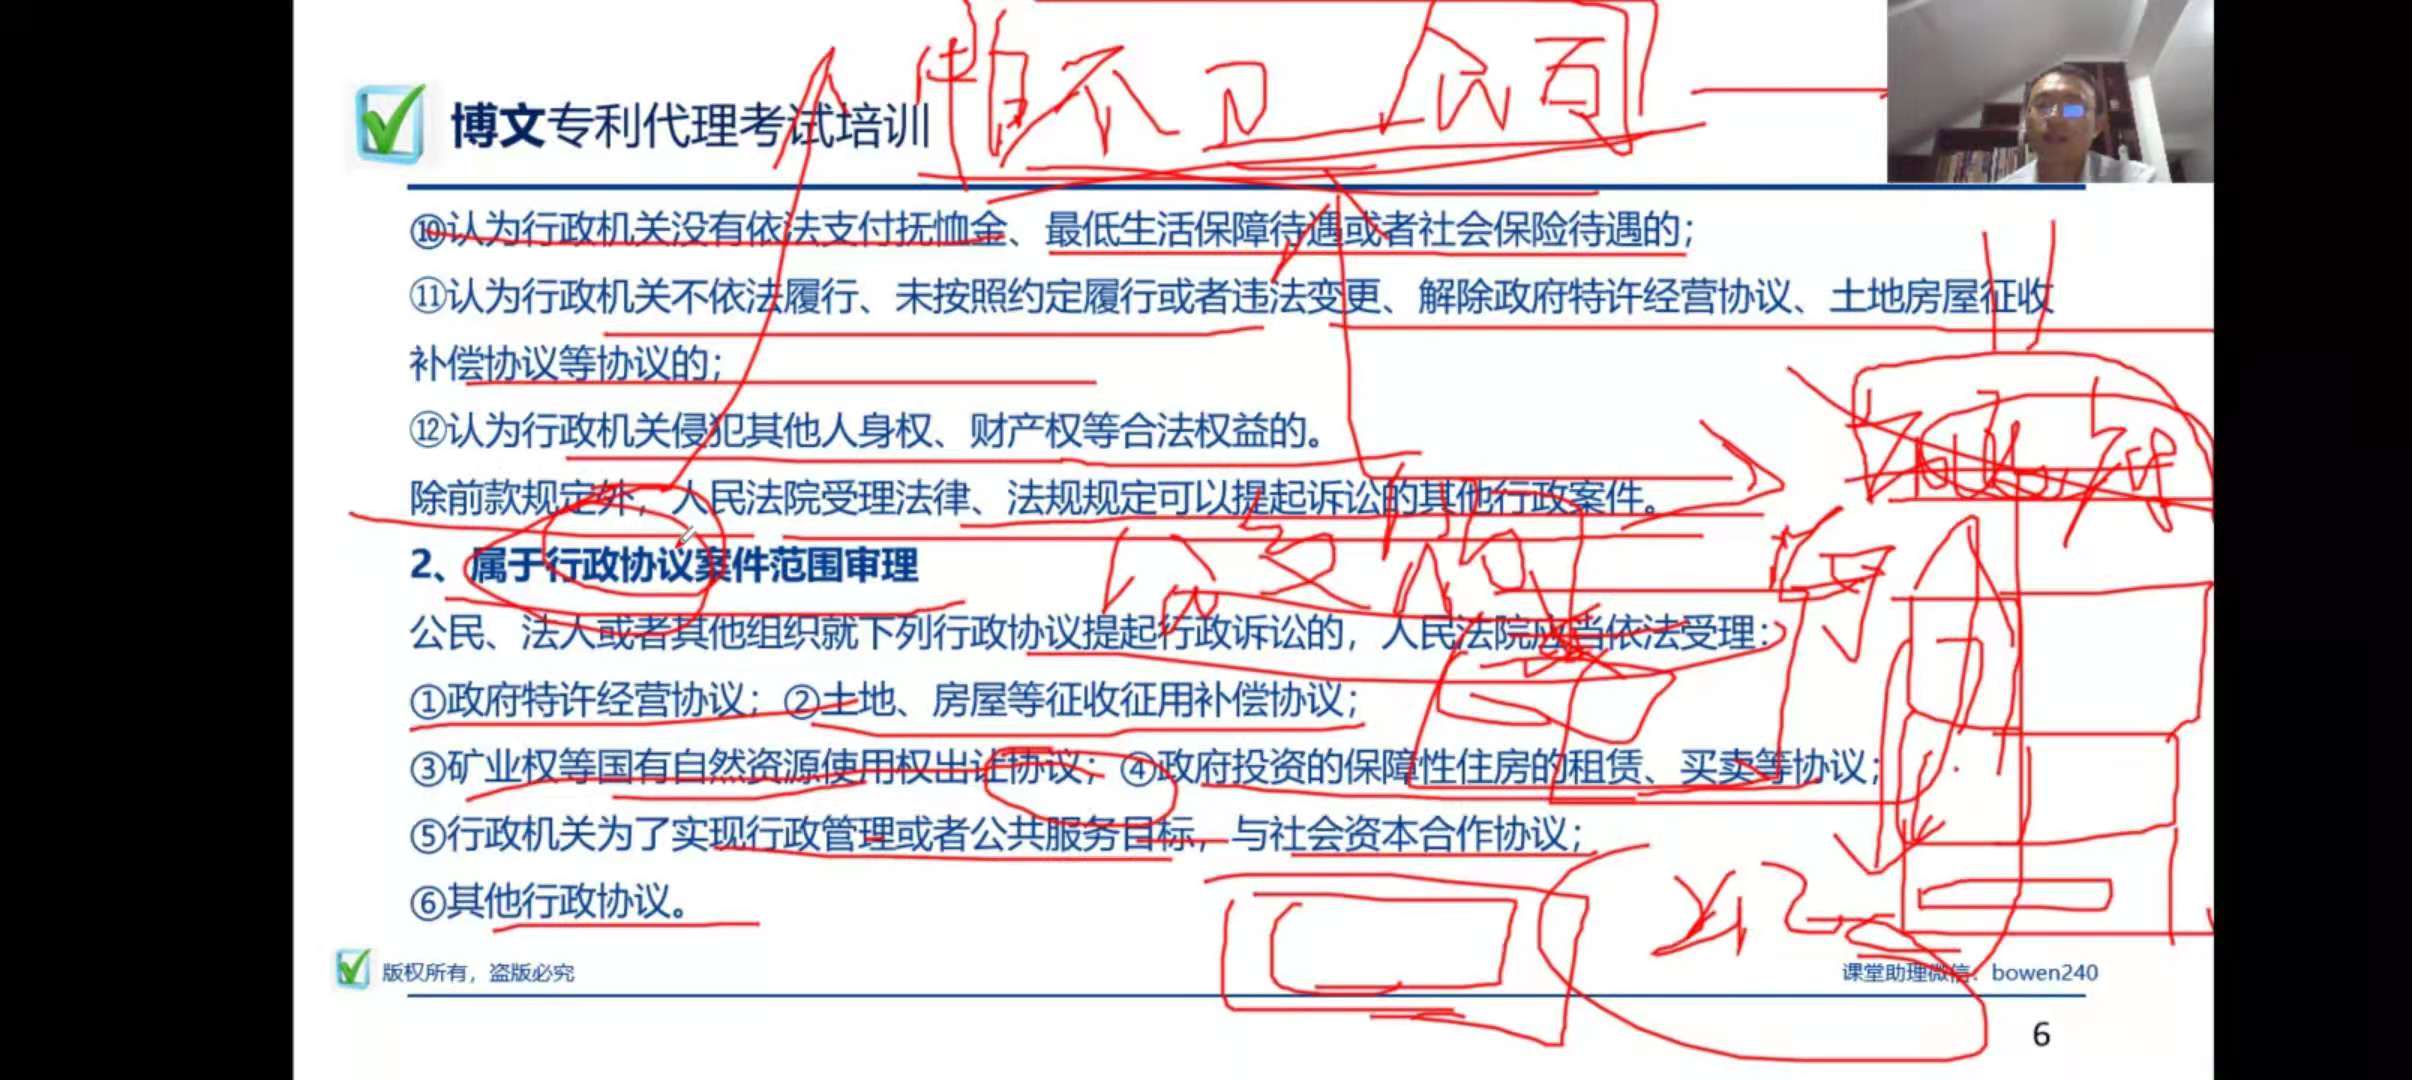 博文专利代理考试培训
⑩认为行政机关没有依法支付抚恤金、最低生活保障待遇或者社会保险待遇的；
⑪认为行政机关不依法履行、未按照约定履行或者违法变更、解除政府特许经营协议、土地房屋征收
补偿协议等协议的；
⑫认为行政机关侵犯其他人身权、财产权等合法权益的。
除前款规定外，人民法院受理法律、法规规定可以提起诉讼的其他行政案件。
2、属于行政协议案件范围审理
公民、法人或者其他组织就下列行政协议提起行政诉讼的，人民法院应当依法受理：
①政府特许经营协议；②土地、房屋等征收征用补偿协议；
③矿业权等国有自然资源使用权出让协议；④政府投资的保障性住房的租赁、买卖等协议；
⑤行政机关为了实现行政管理或者公共服务目标，与社会资本合作协议；
⑥其他行政协议。
版权所有，盗版必究
课堂助理微信：bowen240
6